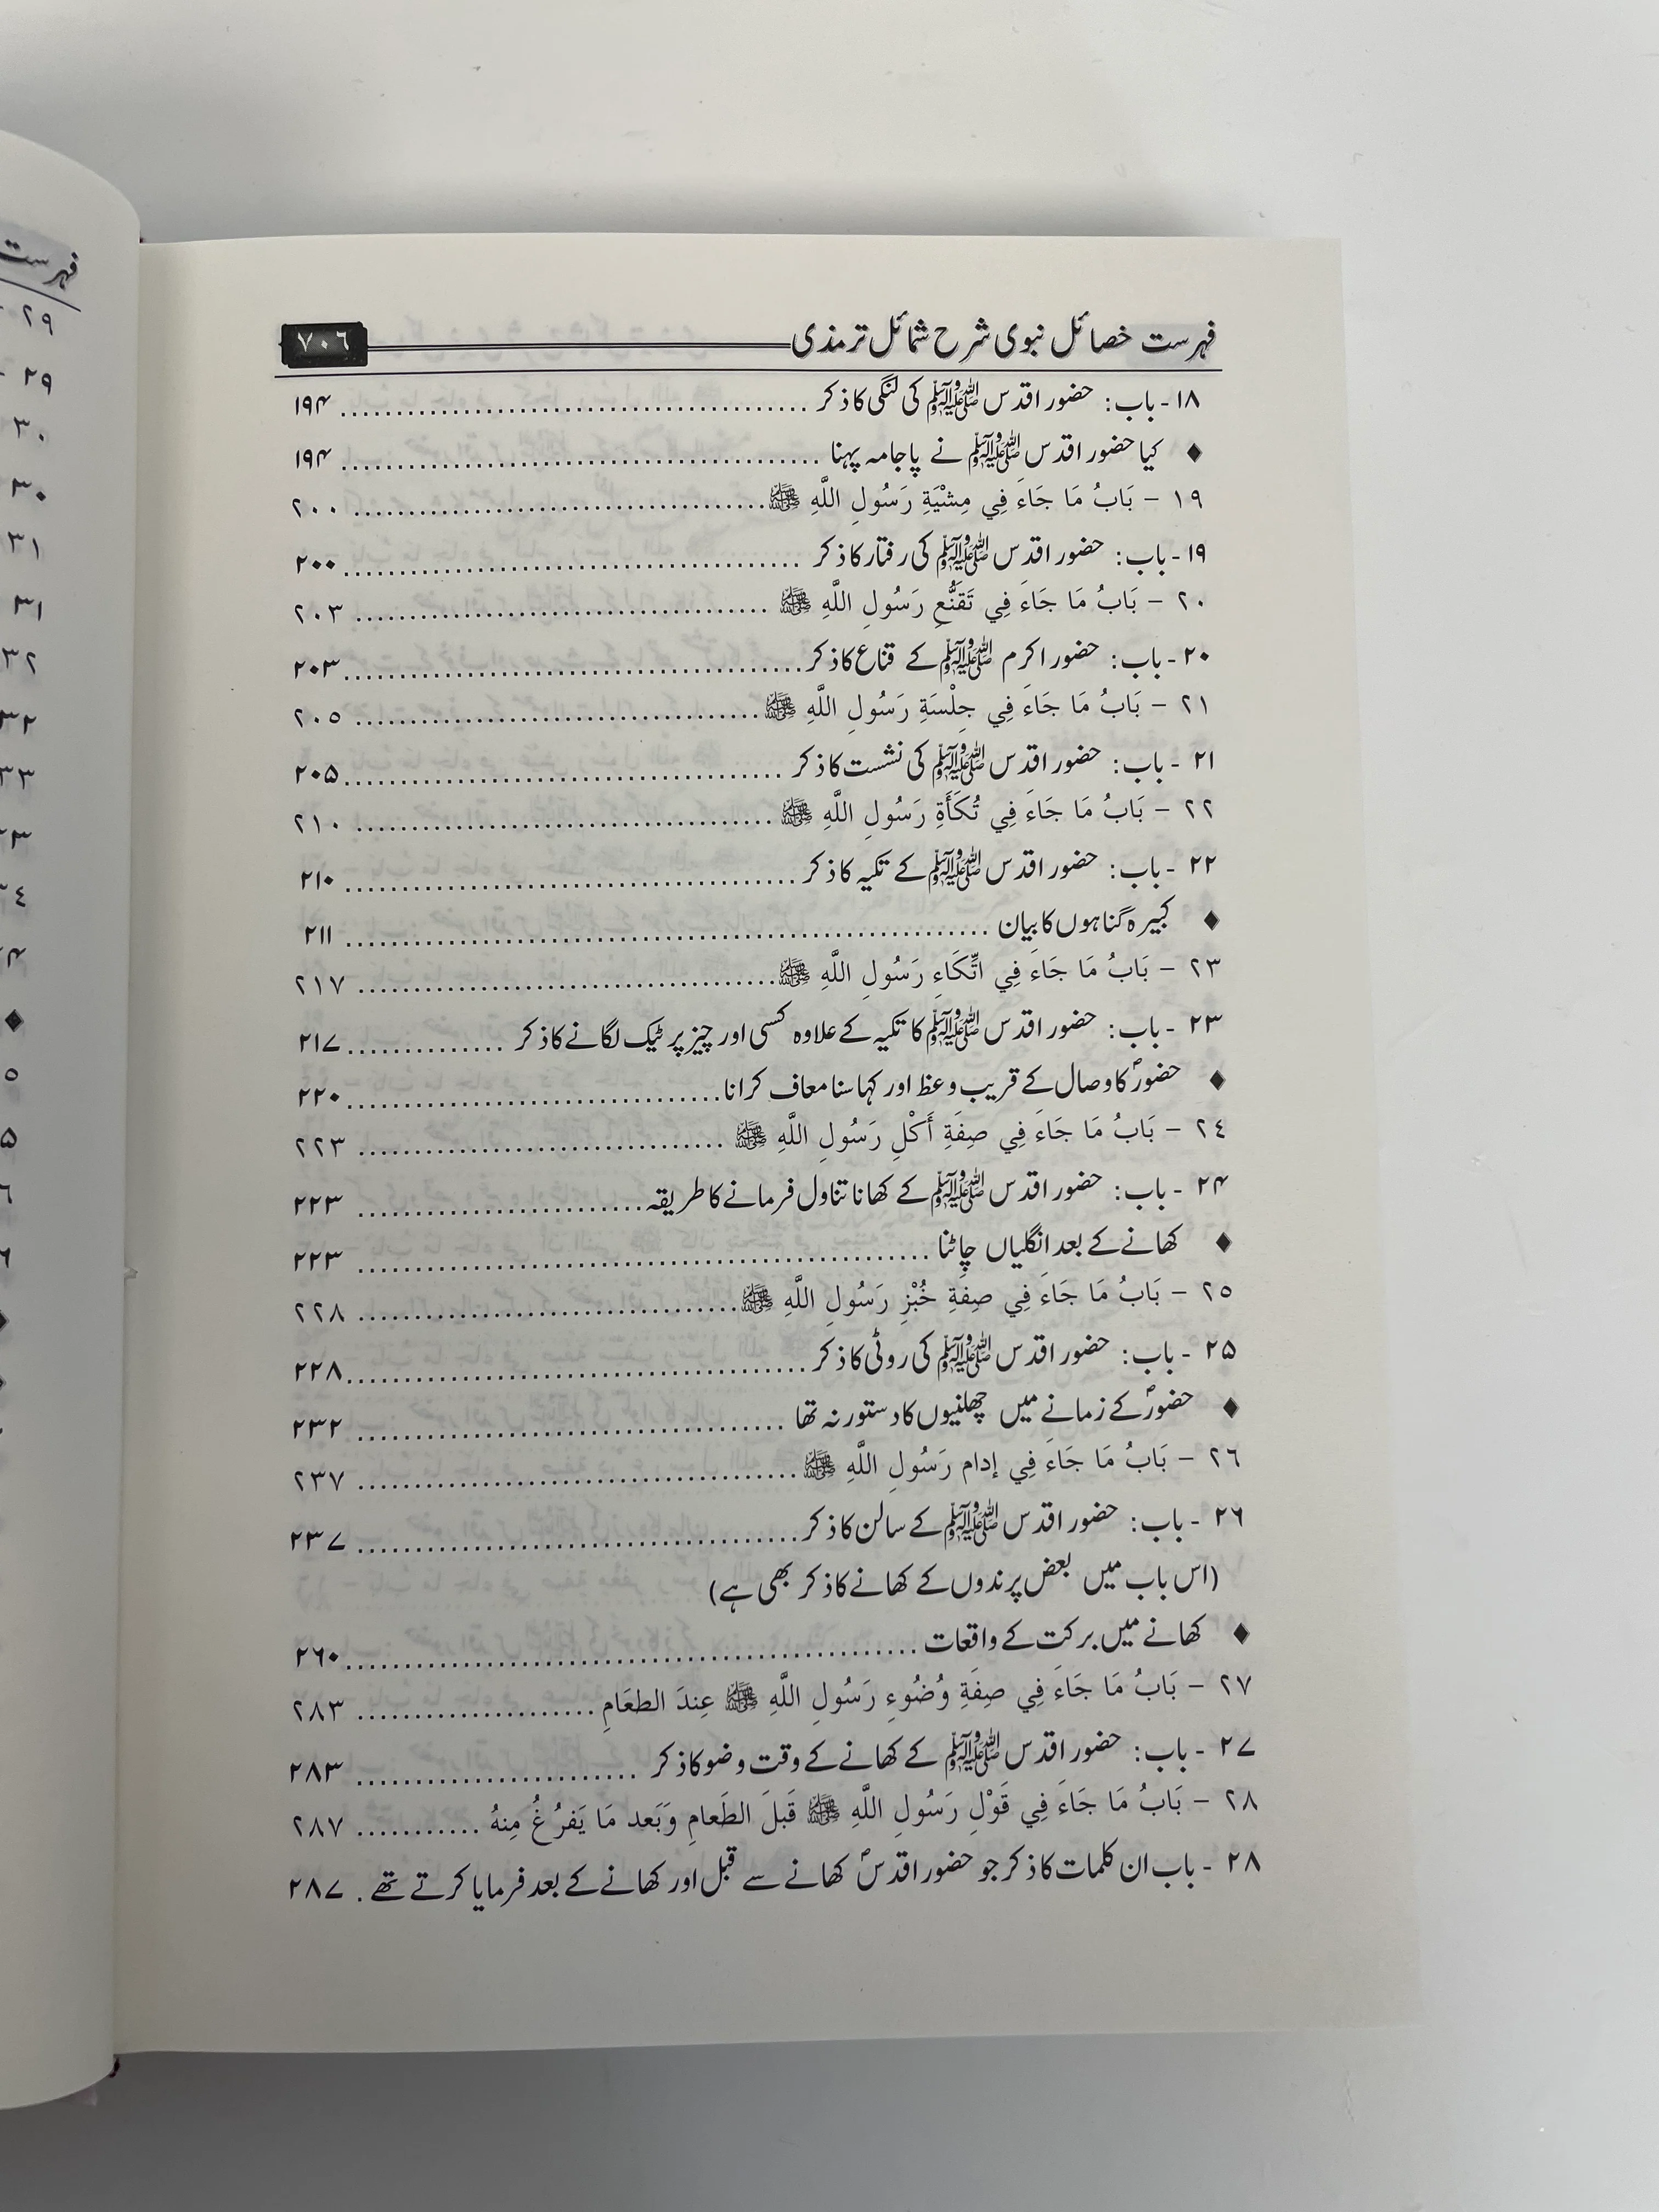 فہرست خصائل نبوی شرح شمائل ترمذی ٧٠٦
۱۸ - باب: حضور اقدس ﷺ کی لنگی کا ذکر ........ ۱۹۴
♦ کیا حضور اقدس ﷺ نے پاجامہ پہنا ........ ۱۹۴
١٩ – بَابُ مَا جَاءَ فِي مِشْيَةِ رَسُولِ اللَّهِ ﷺ ........ ٢٠٠
۱۹ - باب: حضور اقدس ﷺ کی رفتار کا ذکر ........ ۲۰۰
٢٠ – بَابُ مَا جَاءَ فِي تَقَنُّعِ رَسُولِ اللَّهِ ﷺ ........ ٢٠٣
۲۰ - باب: حضور اکرم ﷺ کے قناع کا ذکر ........ ۲۰۳
٢١ – بَابُ مَا جَاءَ فِي جِلْسَةِ رَسُولِ اللَّهِ ﷺ ........ ٢٠٥
۲۱ - باب: حضور اقدس ﷺ کی نشست کا ذکر ........ ۲۰۵
٢٢ – بَابُ مَا جَاءَ فِي تُكَأَةِ رَسُولِ اللَّهِ ﷺ ........ ٢١٠
۲۲ - باب: حضور اقدس ﷺ کے تکیہ کا ذکر ........ ۲۱۰
♦ کبیرہ گناہوں کا بیان ........ ۲۱۱
٢٣ – بَابُ مَا جَاءَ فِي اتِّكَاءِ رَسُولِ اللَّهِ ﷺ ........ ٢١٧
۲۳ - باب: حضور اقدس ﷺ کا تکیہ کے علاوہ کسی اور چیز پر ٹیک لگانے کا ذکر ........ ۲۱۷
♦ حضورؐ کا وصال کے قریب وعظ اور کہا سنا معاف کرانا ........ ۲۲۰
٢٤ – بَابُ مَا جَاءَ فِي صِفَةِ أَكْلِ رَسُولِ اللَّهِ ﷺ ........ ٢٢٣
۲۴ - باب: حضور اقدس ﷺ کے کھانا تناول فرمانے کا طریقہ ........ ۲۲۳
♦ کھانے کے بعد انگلیاں چاٹنا ........ ۲۲۳
٢٥ – بَابُ مَا جَاءَ فِي صِفَةِ خُبْزِ رَسُولِ اللَّهِ ﷺ ........ ٢٢٨
۲۵ - باب: حضور اقدس ﷺ کی روٹی کا ذکر ........ ۲۲۸
♦ حضورؐ کے زمانے میں چھلنیوں کا دستور نہ تھا ........ ۲۳۲
٢٦ – بَابُ مَا جَاءَ فِي إدام رَسُولِ اللَّهِ ﷺ ........ ٢٣٧
۲۶ - باب: حضور اقدس ﷺ کے سالن کا ذکر ........ ۲۳۷
(اس باب میں بعض پرندوں کے کھانے کا ذکر بھی ہے)
♦ کھانے میں برکت کے واقعات ........ ۲۶۰
٢٧ – بَابُ مَا جَاءَ فِي صِفَةِ وُضُوءِ رَسُولِ اللَّهِ ﷺ عِندَ الطعَامِ ........ ٢٨٣
۲۷ - باب: حضور اقدس ﷺ کے کھانے کے وقت وضو کا ذکر ........ ۲۸۳
٢٨ – بَابُ مَا جَاءَ فِي قَوْلِ رَسُولِ اللَّهِ ﷺ قَبلَ الطَعامِ وَبَعد مَا يَفرُغُ مِنهُ ........ ٢٨٧
۲۸ - باب ان کلمات کا ذکر جو حضور اقدسؐ کھانے سے قبل اور کھانے کے بعد فرمایا کرتے تھے . ۲۸۷